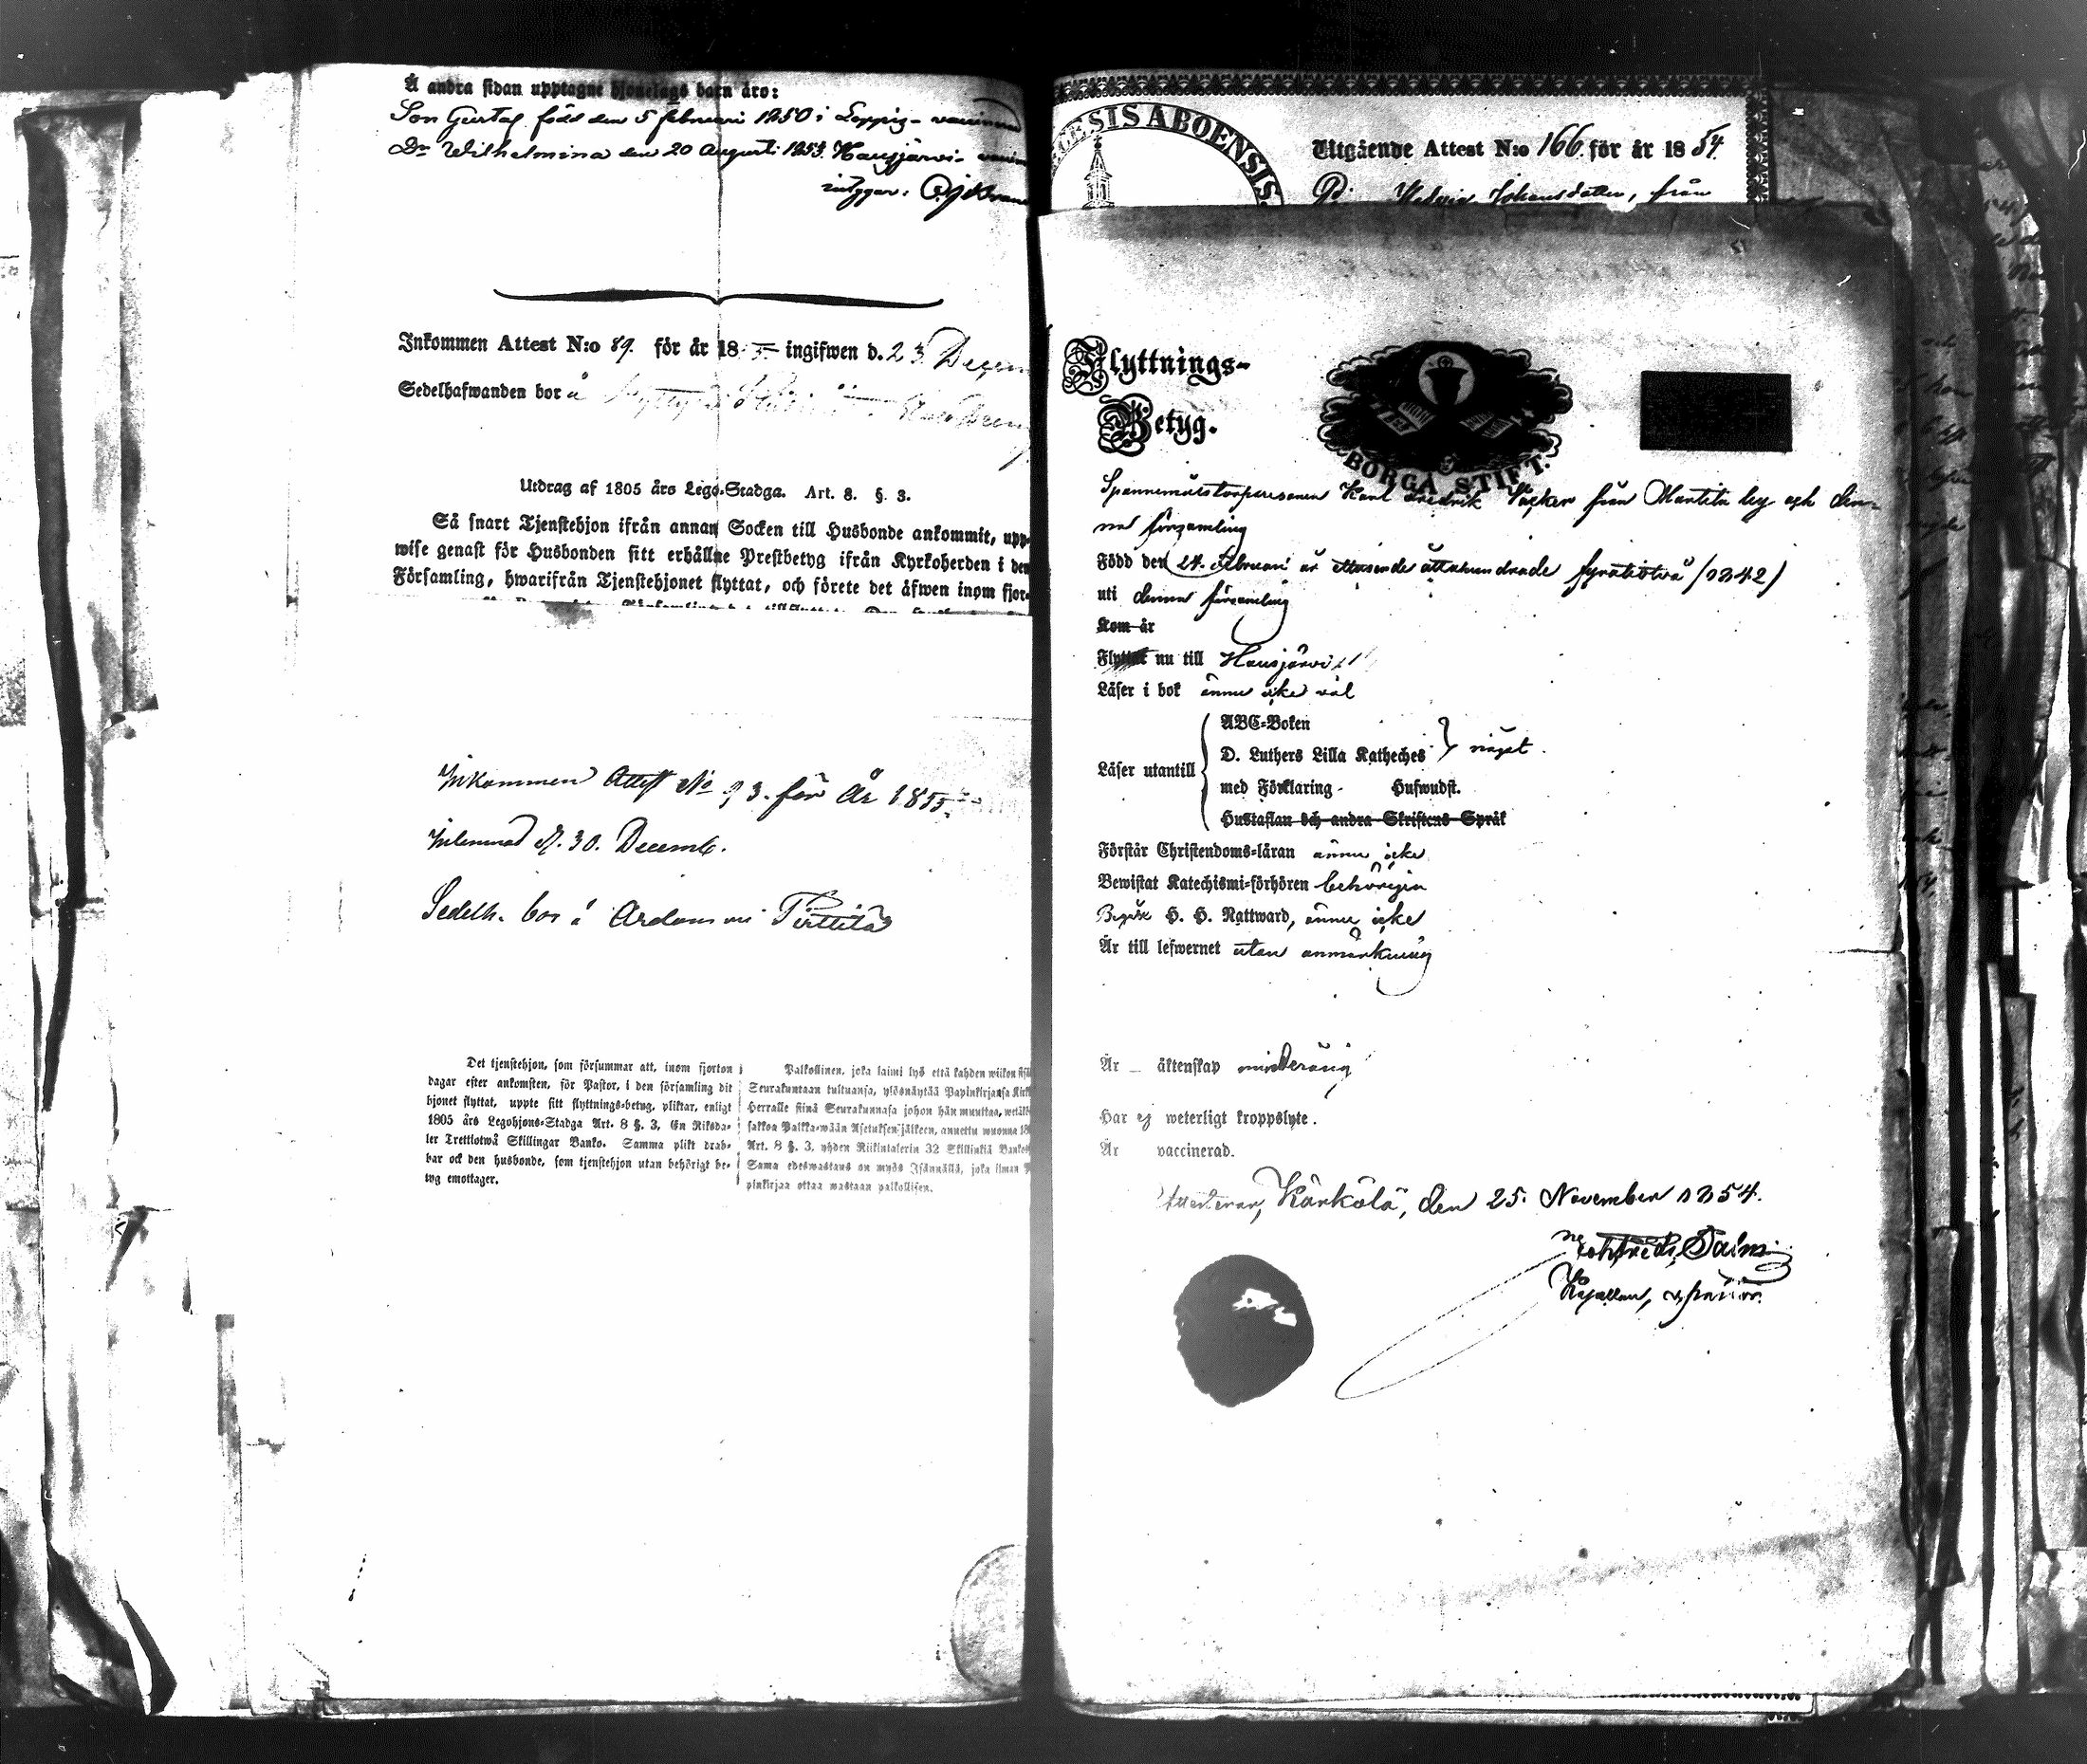 Å andra sidan upptagne hjonelags barn äro:
Son Gustaf född den 5 februari 1850 i Loppis - vaccinerad
Dr Wilhelmina den 20 Augusti 1853 Hausjärvi -
intygar:
Inkommen Attest N:o 89. för år 18 ingifwen d. 23 Decem
Sedelhafwanden bor å
Utdrag af 1805 års Lego-Stadga. Art. 8. §. 3.
Så snart Tjenstehjon ifrån annan Socken till Husbonde ankommit, upp-
wise genast för Husbonden sitt erhållne Prestbetyg ifrån Kyrkoherden i den
Församling, hwarifrån Tjenstehjonet flyttat, och förete det äfwen inom fjor-
Inkommen Attest No 93. för År 1855.
Inlemnad d. 30. Decemb.
Sedelh. bor å Arolammi Pirttilä
Det tjenstehjon, som försummar att, inom fjorton
dagar efter ankomsten, för Pastor, i den församling dit
hjonet flyttat, uppte sitt flyttnings-betyg, pliktar, enligt
1805 års Legohjons-Stadga Art. 8 §. 3, En Riksda-
ler Trettiotwå Skillingar Banko. Samma plikt drab-
bar ock den husbonde, som tjenstehjon utan behörigt be-
tyg emottager.
Palkollinen, joka laimi lyö että kahden wiikon sisä
Seurakuntaan tultuansa, ylösnäyttää Papinkirjansa Kirk
Herralle siinä Seurakunnasa johon hän muuttaa, wetäk
sakkoa Palkka-wään Asetuksen jälkeen, annettu wuonna 18
Art. 8 §. 3, yhden Riikintalerin 32 Skillinkiä Banko
Sama edeswastaus on myös Isännällä, joka ilman P
pinkirjaa ottaa wastaan palkollisen.
ESIS ABOENSIS.
Utgående Attest N:o 166. för år 18 54.
Pi. Hedvig Johansdotter, från
Flyttnings-
Betyg.
BORGÅ STIFT.
Spannemålstorparesonen Karl Fredrik från Marttila by och den-
na församling
Född den 24. Februari år ettusende åttahundrade fyratiotvå /1842/
uti denna församling
Kom år
Flyttar nu till Hausjärvi
Läser i bok ännu icke väl
Läser utantill
ABC-Boken
D. Luthers Lilla Katheches
något.
med Förklaring - Huswudst.
Hustaflan och andra Skriftens Språk
Förstår Christendoms-läran ännu icke
Bewistat Katechismi-förhören behörigen
Begått H. H. Nattward, ännu icke
Är till lefwernet utan anmärkning
Är äktenskap minderårig
Har ej weterligt kroppslyte.
Är vaccinerad.
Attesterar, Kärkölä, den 25. November 1854.
Kapellan,